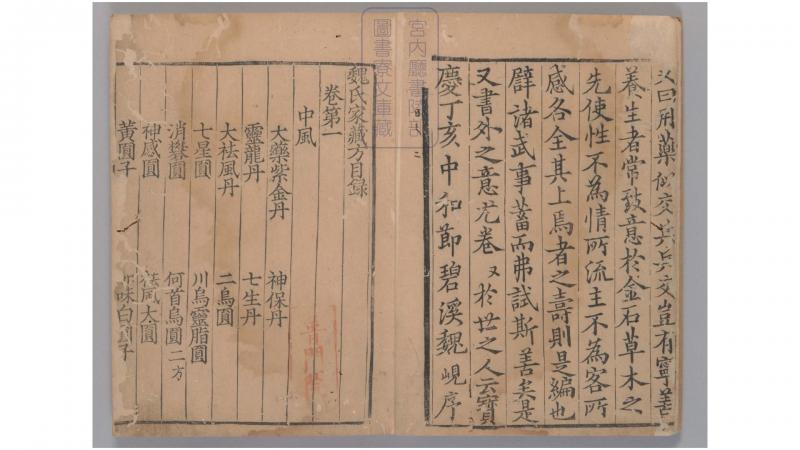 曰用藥如交兵兵交豈有寧善
養生者常致意於金石草木之
先使性不為情所流主不為客所
感各全其上焉者之壽則是編也
譬諸武事蓄而弗試斯善矣是
又書外之意㞮卷〻於世之人云寶
慶丁亥中和節碧溪魏峴序
宮內廳書陵部
圖書寮文庫藏
魏氏家藏方目錄
卷第一
中風
大藥紫金丹 神保丹
靈龍丹 七生丹
大祛風丹 二烏圓
七星圓 川烏靈脂圓
消礬圓 何首烏圓二方
神感圓 祛風大圓
黃圓子 味白圓子